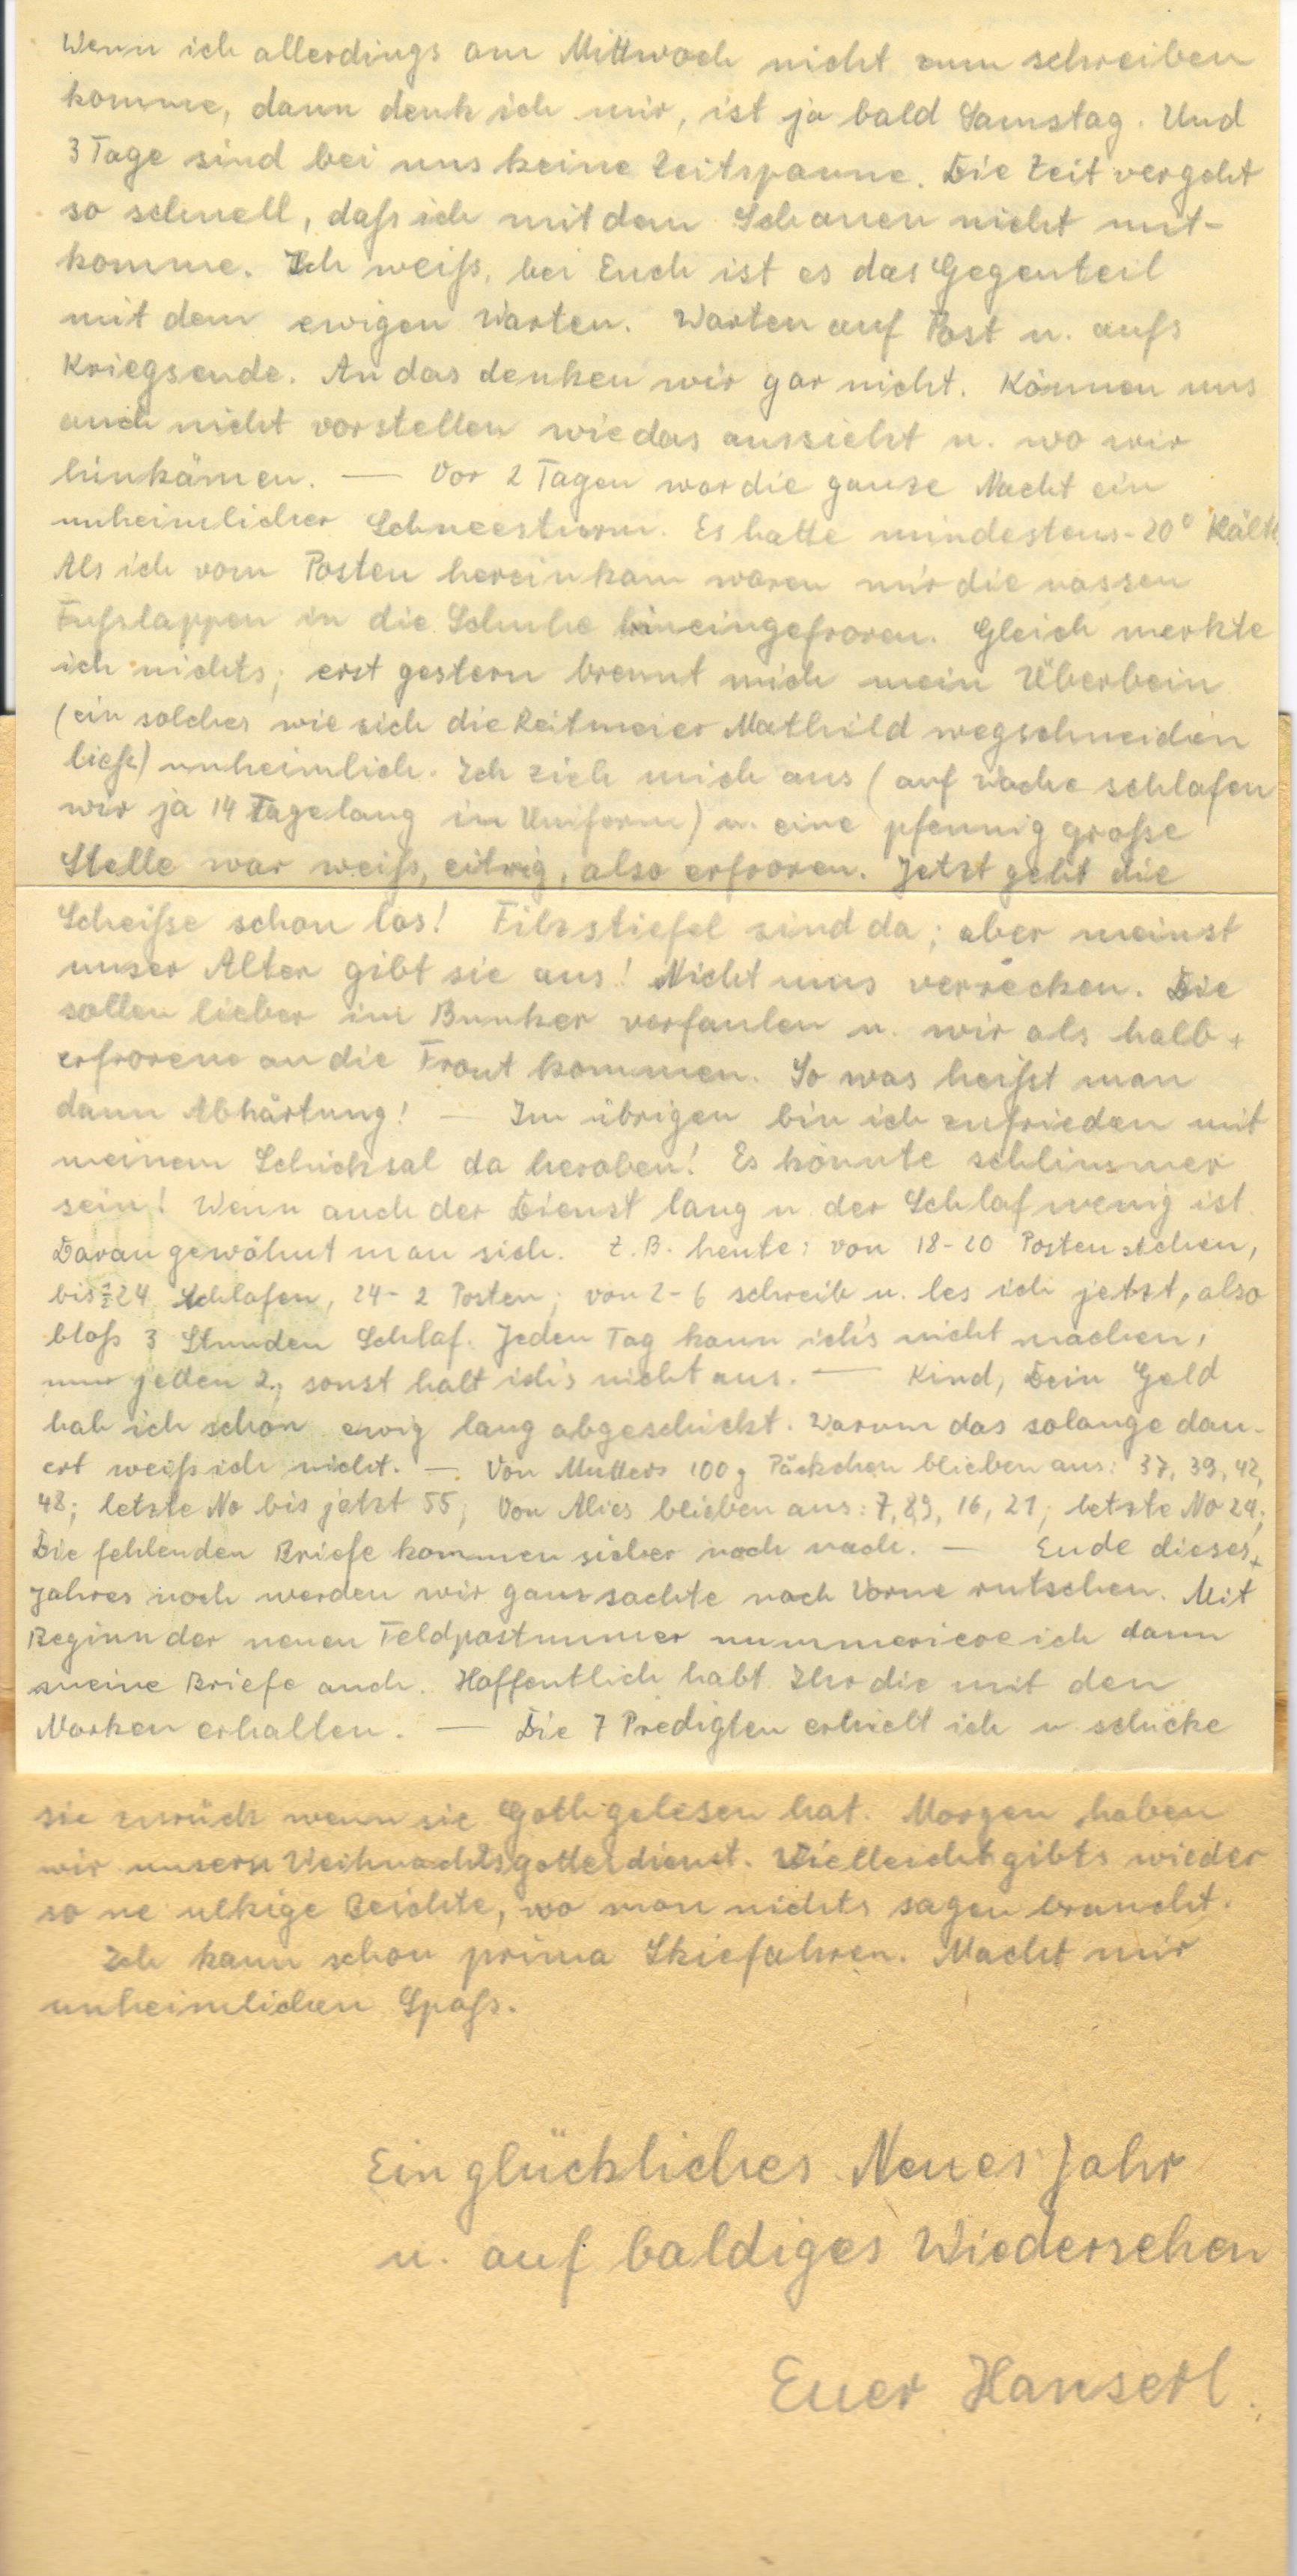 Wenn ich allerdings am Mittwoch nicht zum schreiben
komme, dann denk ich mir, ist ja bald Samstag. Und
3 Tage sind bei uns keine Zeitspanne. Die Zeit vergeht
so schnell, daß ich mit dem Schauen nicht mit-
komme. Ich weiß, bei Euch ist es das Gegenteil
mit dem ewigen Warten. Warten auf Post u. aufs
Kriegsende. An das denken wir gar nicht. Können uns
auch nicht vorstellen wie das aussieht u. wo wir
hinkämen. — Vor 2 Tagen war die ganze Nacht ein
unheimlicher Schneesturm. Es hatte mindestens -20° Kälte.
Als ich vom Posten hereinkam waren mir die nassen
Fußlappen in die Schuhe hineingefroren. Gleich merkte
ich nichts; erst gestern brennt mich mein Überbein
(ein solches wie sich die Reitmeier Mathild wegschneiden
ließ) unheimlich. Ich zieh mich aus (auf Wache schlafen
wir ja 14 Tage lang in Uniform) u. eine pfennig große
Stelle war weiß, eitrig, also erfroren. Jetzt geht die
Scheiße schon los! Filzstiefel sind da; aber meinst
unser Alter gibt sie aus! Nicht ums verrecken. Die
sollen lieber im Bunker verfaulen u. wir als halb-
erfrorene an die Front kommen. So was heißt man
dann Abhärtung! — Im übrigen bin ich zufrieden mit
meinem Schicksal da heroben! Es könnte schlimmer
sein! Wenn auch der Dienst lang u. der Schlaf wenig ist.
Daran gewöhnt man sich. Z.B. heute: von 18-20 Posten stehen,
bis ½24 schlafen, 24-2 Posten; von 2-6 schreib u. les ich jetzt, also
bloß 3 Stunden Schlaf. Jeden Tag kann ich's nicht machen,
nur jeden 2., sonst halt ich's nicht aus. — Kind, Dein Geld
hab ich schon ewig lang abgeschickt. Warum das solange dau-
ert weiß ich nicht. — Von Mutters 100 g Päckchen blieben aus: 37, 39, 42,
48; letzte No bis jetzt 55; Von Alies blieben aus: 7, 8, 9, 16, 21; letzte No 24;
Die fehlenden Briefe kommen sicher noch nach. — Ende dieses
Jahres noch werden wir ganz sachte nach Vorne rutschen. Mit
Beginn der neuen Feldpostnummer nummeriere ich dann
meine Briefe auch. Hoffentlich habt Ihr die mit den
Marken erhalten. — Die 7 Predigten erhielt ich u. schicke
sie zurück wenn sie Goth gelesen hat. Morgen haben
wir unsern Weihnachtsgottesdienst. Vielleicht gibts wieder
so ne ulkige Beichte, wo man nichts sagen braucht.
Ich kann schon prima Skiefahren. Macht mir
unheimlichen Spaß.
Ein glückliches Neues Jahr
u. auf baldiges Wiedersehen
Euer Hanserl.